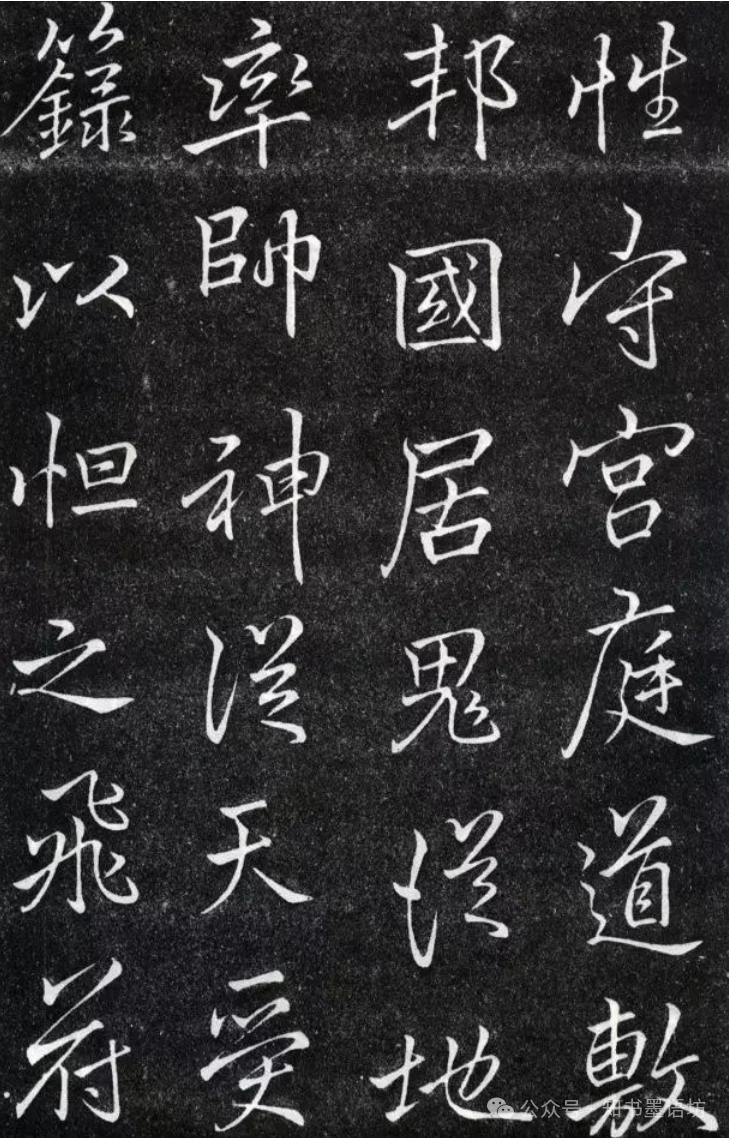 性守宮庭道敷
邦國居鬼從地
率帥神從天受
籙以怛之飛符
公众号 · 知书墨语坊